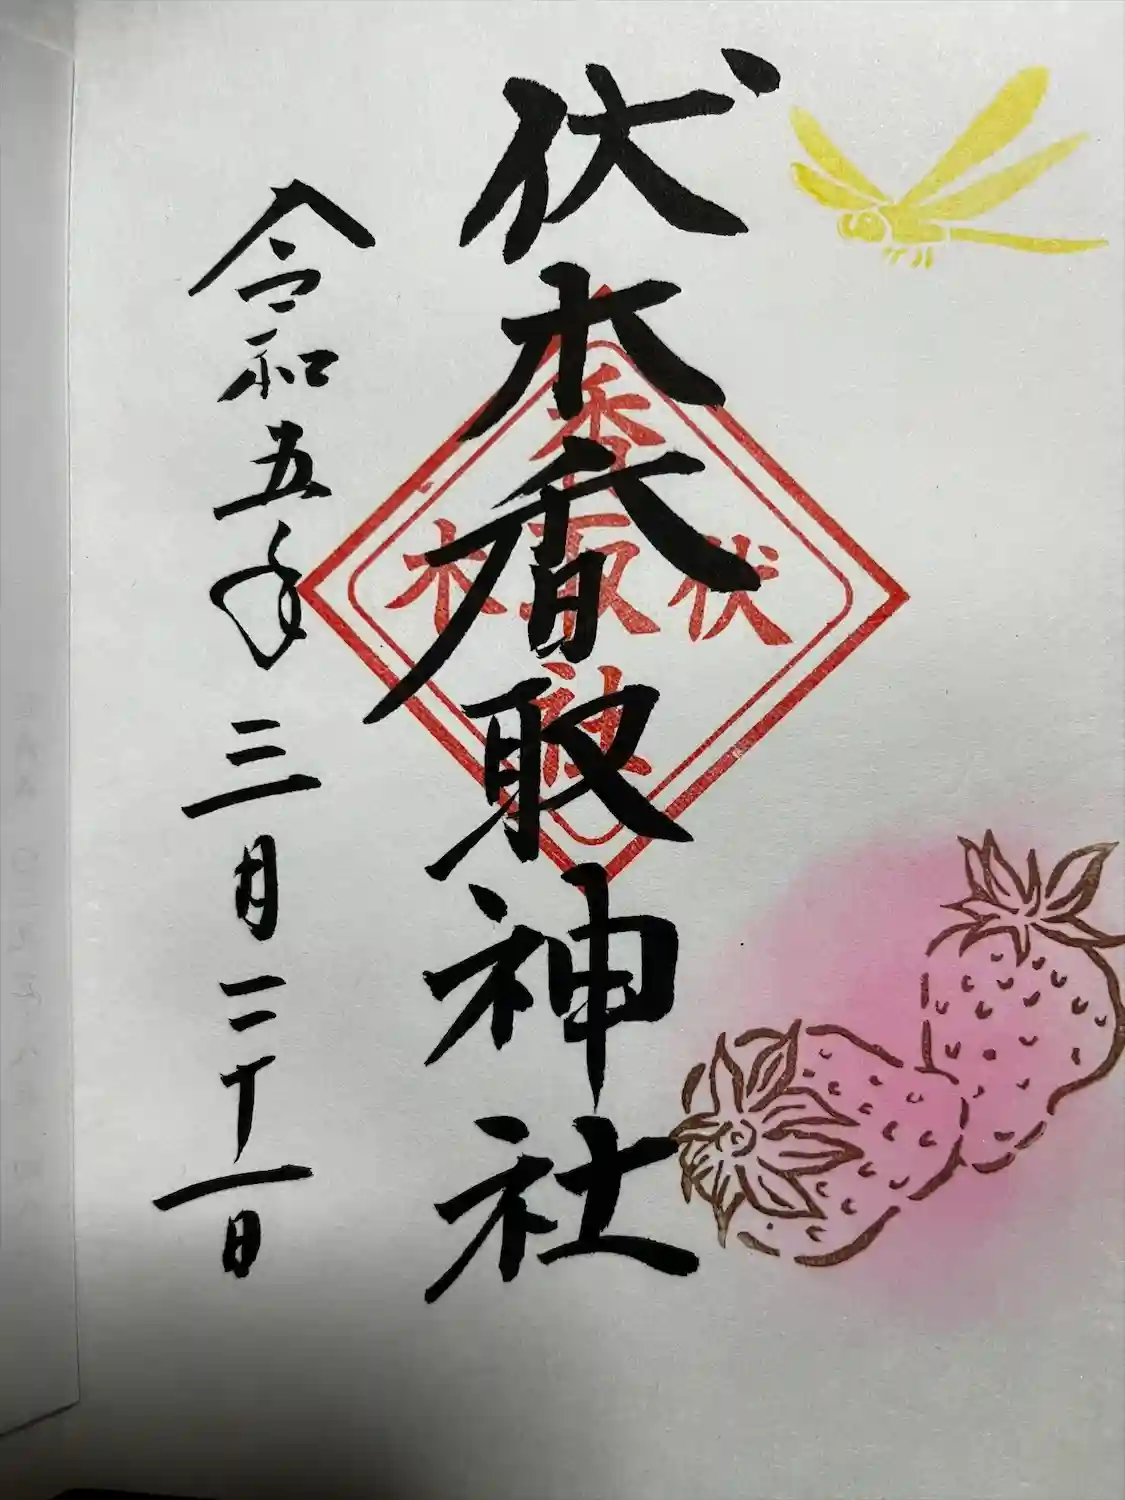 伏木香取神社
伏木
香取社
令和五年三月二十一日